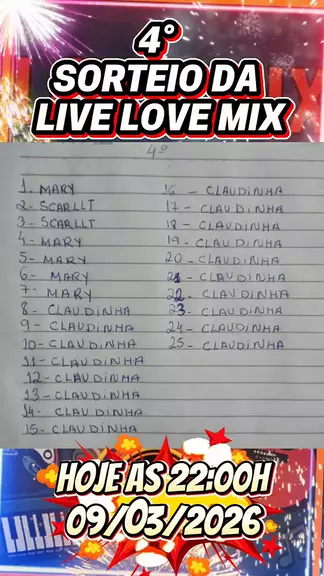 4º
SORTEIO DA
LIVE LOVE MIX
4º
1. MARY
2- SCARLLT
3- SCARLLT
4- MARY
5- MARY
6- MARY
7- MARY
8- CLAUDINHA
9- CLAUDINHA
10- CLAUDINHA
11- CLAUDINHA
12- CLAUDINHA
13- CLAUDINHA
14- CLAUDINHA
15- CLAUDINHA
16 - CLAUDINHA
17 - CLAUDINHA
18 - CLAUDINHA
19 - CLAUDINHA
20 - CLAUDINHA
21 - CLAUDINHA
22 - CLAUDINHA
23 - CLAUDINHA
24 - CLAUDINHA
25 - CLAUDINHA
HOJE AS 22:00H
09/03/2026